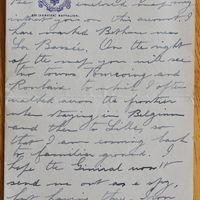 the
may
interest you on this account, I
have marked Bethune near
La Bassée. On the right
of the map you will see
two towns Tourcoing and
Roubaix to which I often
walked across the frontier
while staying in Belgium
and then to Lille, so
that I am coming back
to familiar ground. I
hope the General won't
send me out as a spy,
but having